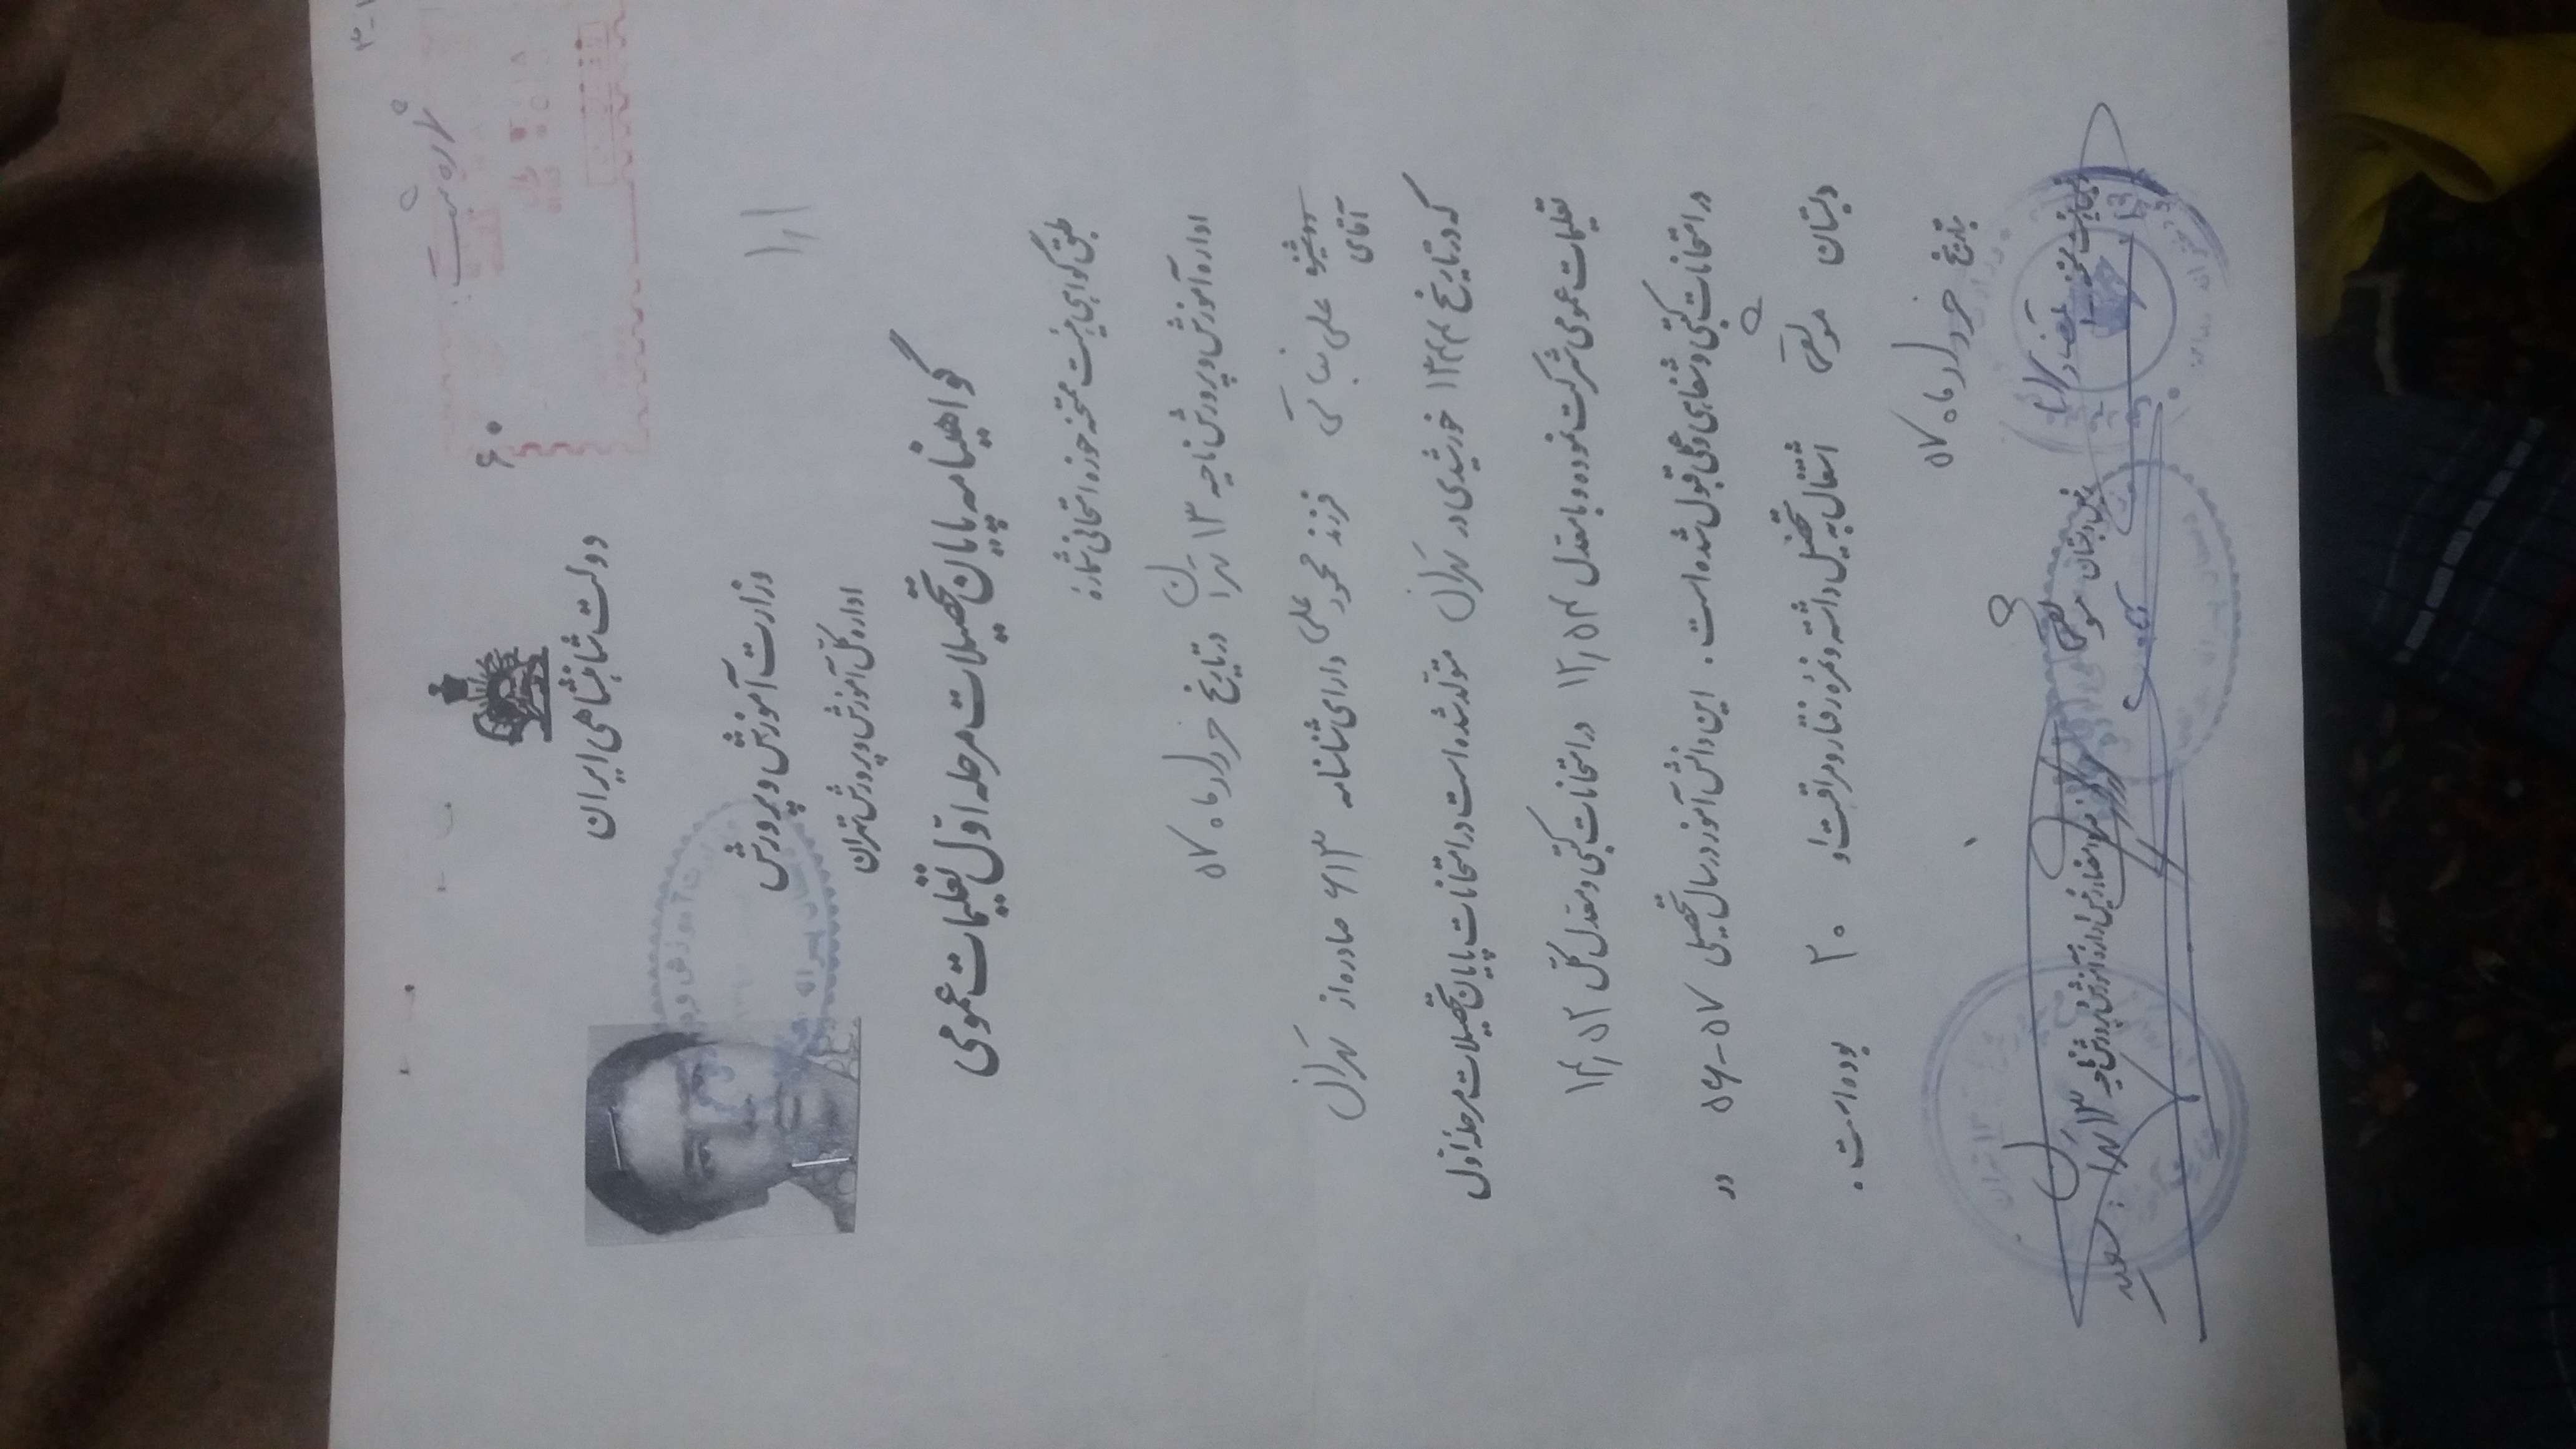 دولت شاهنشاهی ایران
وزارت آموزش و پرورش
اداره کل آموزش و پرورش تهران
گواهینامه پایان تحصیلات مرحله اول تعلیمات عمومی
طبق گواهی هیئت ممتحنه حوزه امتحانی شماره
اداره آموزش و پرورش ناحیه ۱۳ تهران در تاریخ خرداد ماه ۵۷
دوشیزه
آقای علی فرزند محمود علی دارای شناسنامه ۶۱۳ صادره از تهران
که در تاریخ ۱۳۴۴ خورشیدی در تهران متولد شده است در امتحانات پایان تحصیلات مرحله اول
تعلیمات عمومی شرکت نموده و با معدل ۱۲٫۵۴ در امتحانات کتبی و معدل کل ۱۴٫۵۲
در امتحانات کتبی و شفاهی و عملی قبول شده است . این دانش آموز در سال تحصیلی ۵۷-۵۶ در
دبستان موثقی اشتغال به تحصیل داشته و نمره رفتار و مراقبت او ۲۰ بوده است .
بتاریخ خرداد ماه ۵۷
رئیس دبستان موثقی
مهر و امضاء رئیس اداره آموزش و پرورش ناحیه ۱۳ تهران